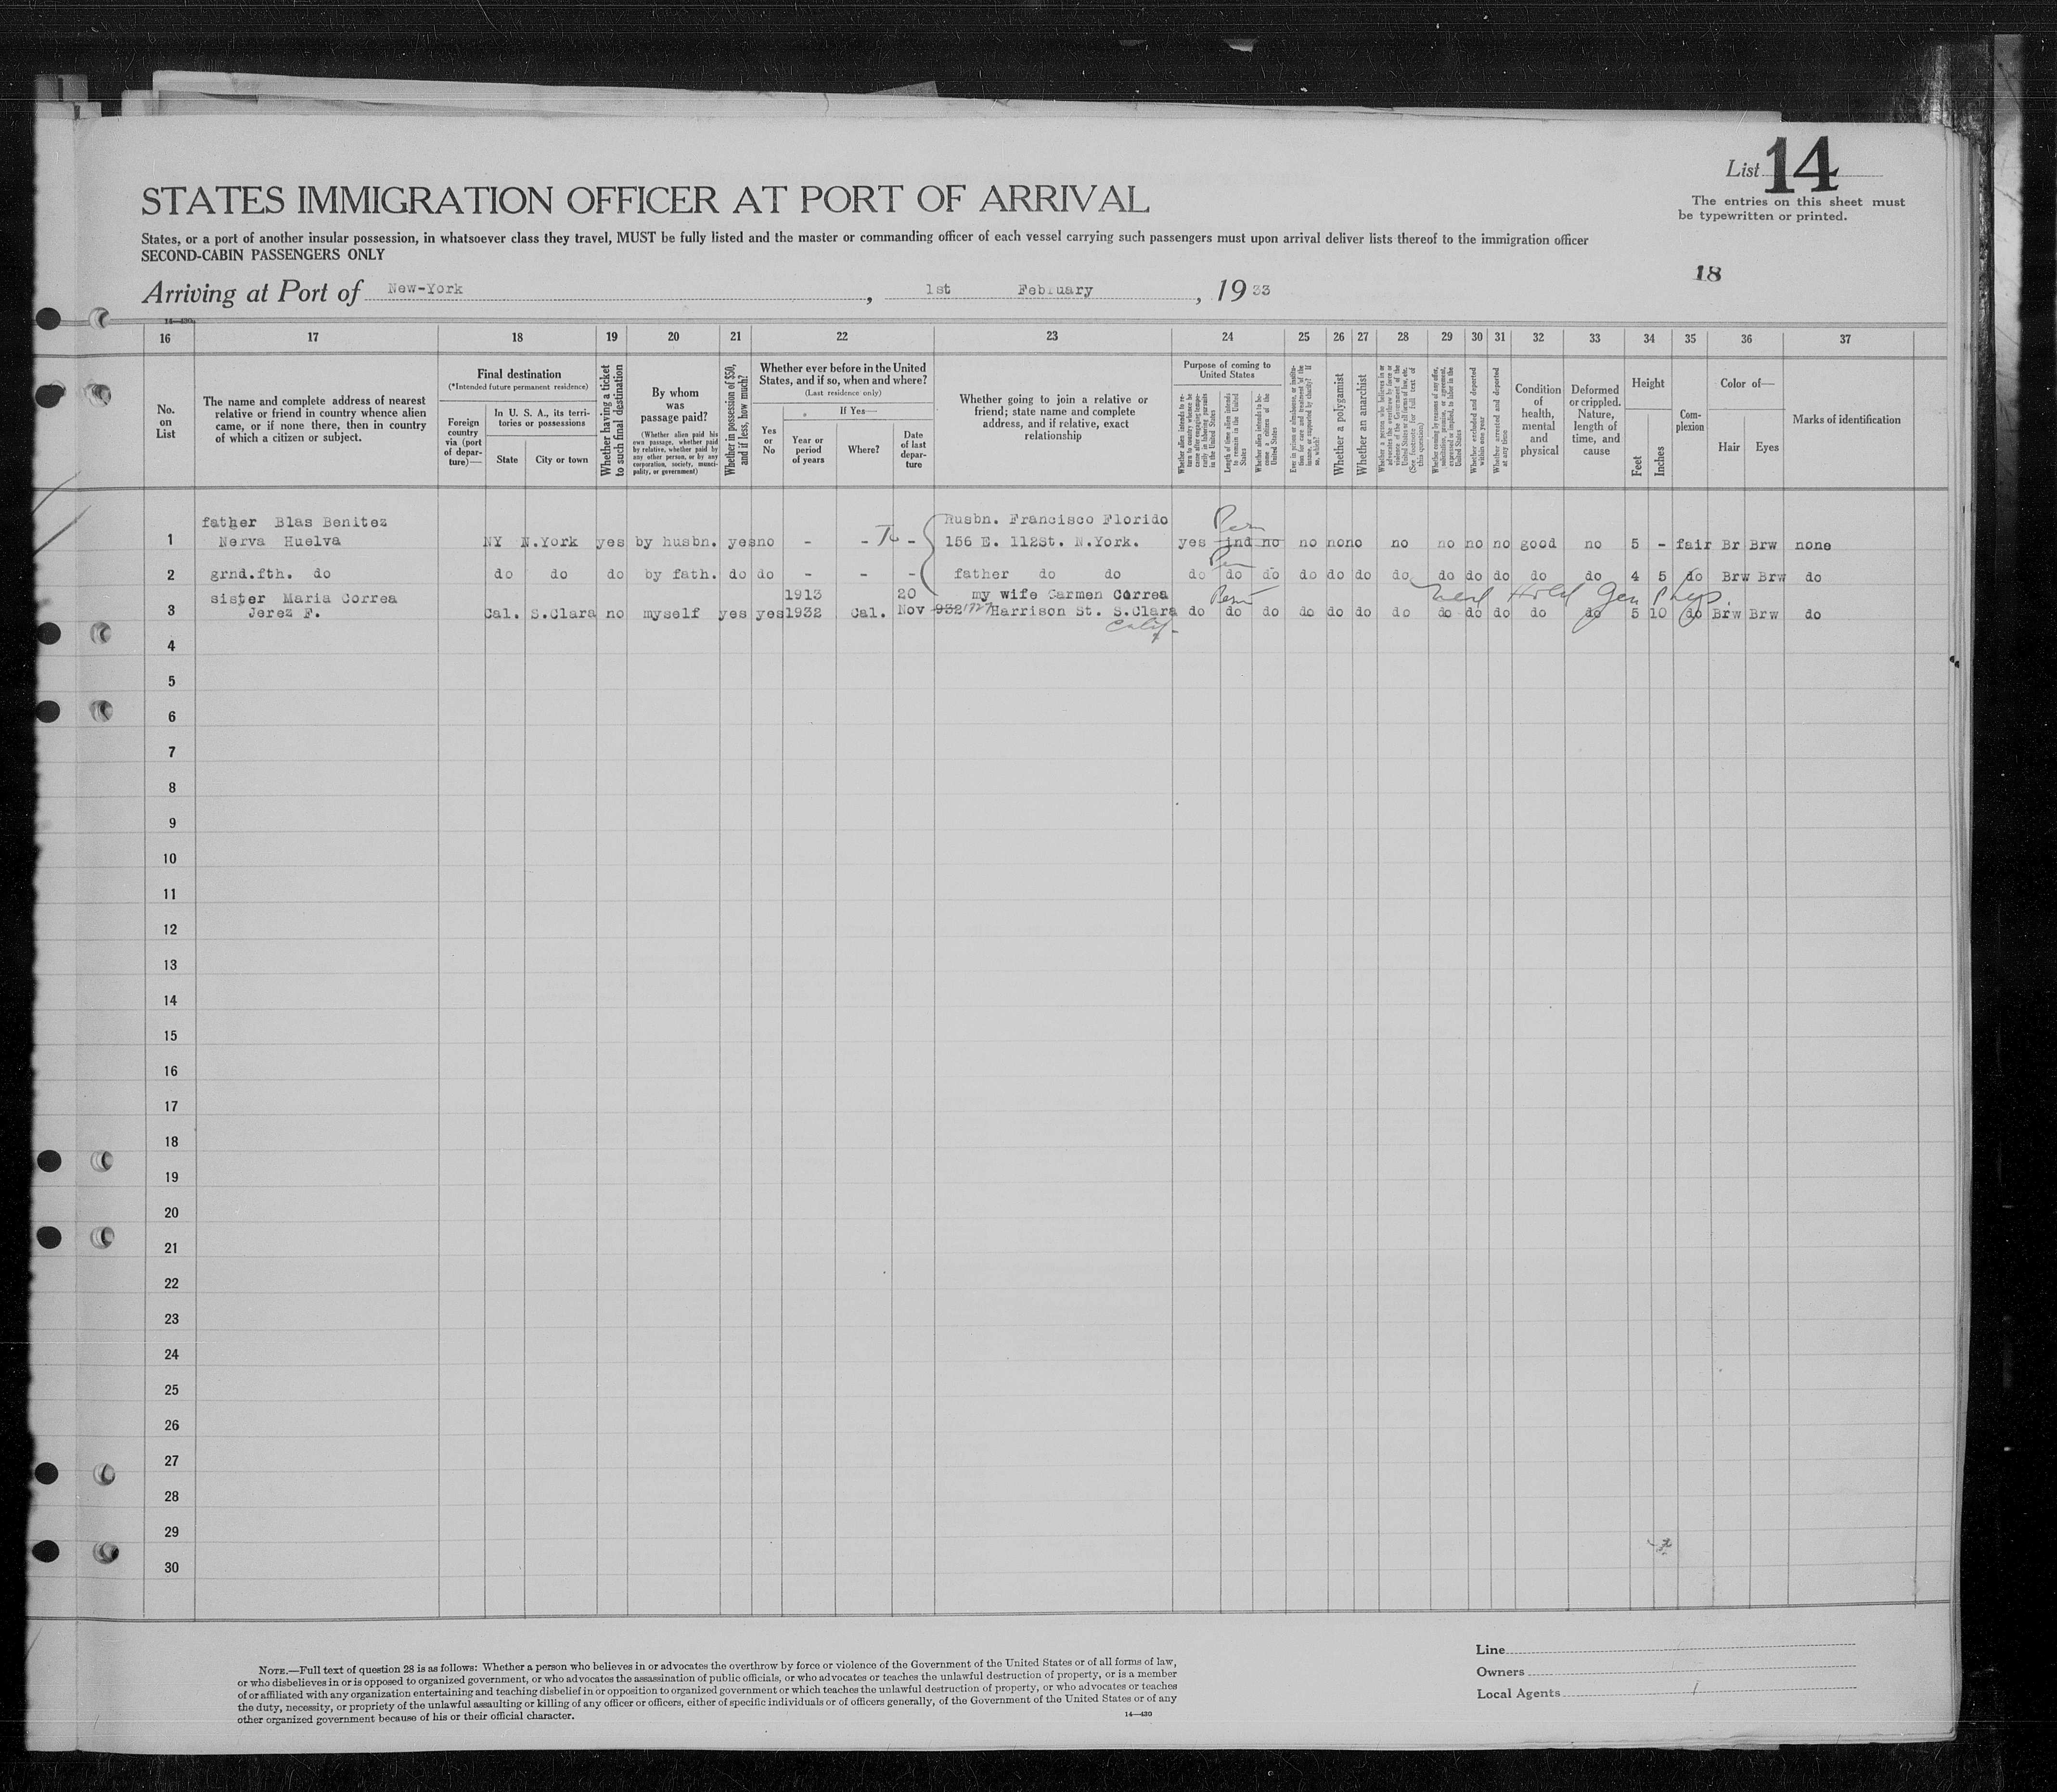 List 14
The entries on this sheet must
be typewritten or printed.
STATES IMMIGRATION OFFICER AT PORT OF ARRIVAL
States, or a port of another insular possession, in whatsoever class they travel, MUST be fully listed and the master or commanding officer of each vessel carrying such passengers must upon arrival deliver lists thereof to the immigration officer
SECOND-CABIN PASSENGERS ONLY
18
Arriving at Port of New-York, 1st February, 1933
14—430
16 17 18 19 20 21 22 23 24 25 26 27 28 29 30 31 32 33 34 35 36 37
No. on List
The name and complete address of nearest
relative or friend in country whence alien
came, or if none there, then in country
of which a citizen or subject.
Final destination
(*Intended future permanent residence)
Foreign country via (port of departure)—
In U. S. A., its territories or possessions
State
City or town
Whether having a ticket to such final destination
By whom was passage paid?
(Whether alien paid his own passage, whether paid by relative, whether paid by any other person, or by any corporation, society, municipality, or government)
Whether in possession of $50, and if less, how much?
Whether ever before in the United States, and if so, when and where?
(Last residence only)
Yes or No
If Yes—
Year or period of years
Where?
Date of last departure
Whether going to join a relative or
friend; state name and complete
address, and if relative, exact
relationship
Purpose of coming to United States
Whether alien intends to return to country whence he came after engaging temporarily in laboring pursuits in the United States
Length of time alien intends to remain in the United States
Whether alien intends to become a citizen of the United States
Ever in prison or almshouse or institution for care and treatment of the insane, or supported by charity? If so, which?
Whether a polygamist
Whether an anarchist
Whether a person who believes in or advocates the overthrow by force or violence of the Government of the United States or all forms of law, etc. (See footnote for full text of this question)
Whether coming by reason of any offer, solicitation, promise, or agreement, expressed or implied, to labor in the United States
Whether excluded and deported within one year
Whether arrested and deported at any time
Condition of health, mental and physical
Deformed or crippled. Nature, length of time, and cause
Height
Feet
Inches
Complexion
Color of—
Hair
Eyes
Marks of identification
father Blas Benitez Husbn. Francisco Florido Per
1 Nerva Huelva NY N.York yes by husbn. yes no - - - 156 E. 112St. N.York. yes ind no no no no no no no no good no 5 - fair Br Brw none
2 grnd.fth. do do do do by fath. do do - - - father do do do do do do do do do do do do do do 4 5 do Brw Brw do
sister Maria Correa 1913 20 my wife Carmen Correa
3 Jerez F. Cal. S.Clara no myself yes yes 1932 Cal. Nov 932 1727 Harrison St. S.Clara do do do do do do do do do do do do 5 10 do Brw Brw do
Calif.
4
5
6
7
8
9
10
11
12
13
14
15
16
17
18
19
20
21
22
23
24
25
26
27
28
29
30
NOTE.—Full text of question 28 is as follows: Whether a person who believes in or advocates the overthrow by force or violence of the Government of the United States or of all forms of law,
or who disbelieves in or is opposed to organized government, or who advocates the assassination of public officials, or who advocates or teaches the unlawful destruction of property, or is a member
of or affiliated with any organization entertaining and teaching disbelief in or opposition to organized government or which teaches the unlawful destruction of property, or who advocates or teaches
the duty, necessity, or propriety of the unlawful assaulting or killing of any officer or officers, either of specific individuals or of officers generally, of the Government of the United States or of any
other organized government because of his or their official character.
14—430
Line
Owners
Local Agents